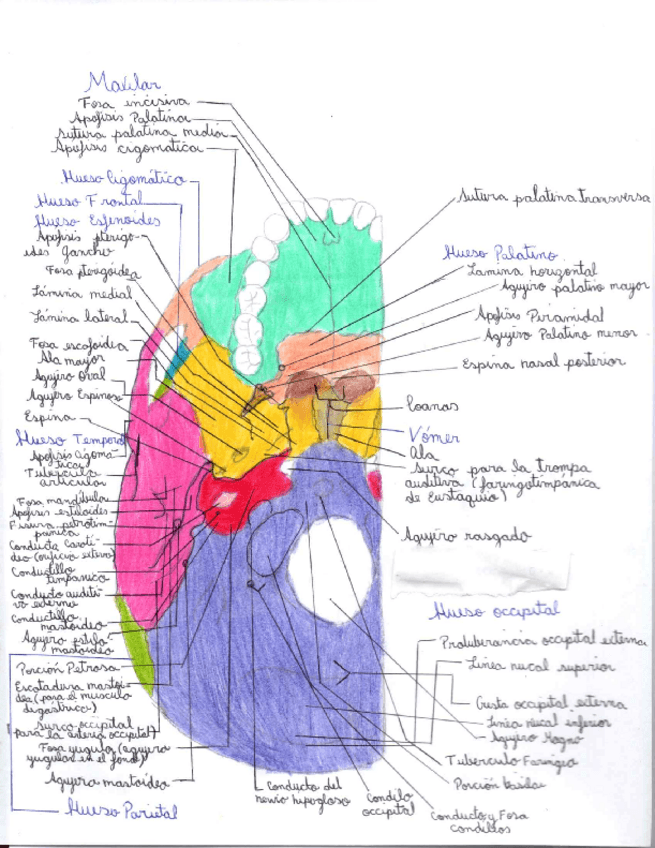 Maxilar
Fosa incisiva
Apofisis Palatina
Sutura palatina media
Apofisis cigomatica
Hueso Cigomático
Hueso Frontal
Hueso Esfenoides
Apofisis pterigo-
ides gancho
Fosa pterigoidea
Lámina medial
Lámina lateral
Fosa escafoidea
Ala mayor
Agujro Oval
Agujro Espinoso
Espina
Hueso Temporal
Apofisis cigoma-
tica
Tuberculo
articular
Fosa mandibula
Apofisis estiloides
Fisura petrotim-
panica
Conducto Caroti-
deo (orificio externo)
Conductillo
timpanico
Conducto auditi-
vo externo
Conductillo
mastoideo
Agujro estilo
mastoideo
Porción Petrosa
Escotadura mastoi-
dea (para el musculo
digástrico)
surco occipital
(para la arteria occipital)
Fosa yugular (agujro
yugular en el fondo)
Agujro mastoideo
Hueso Parietal
Sutura palatina transversa
Hueso Palatino
Lamina horizontal
Agujro palatino mayor
Apofisis Piramidal
Agujro Palatino menor
Espina nasal posterior
Coanas
Vómer
Ala
surco para la trompa
auditiva (faringotimpánica
de Eustaquio)
Agujro rasgado
Hueso occipital
Protuberancia occipital externa
Linea nucal superior
Cresta occipital externa
Linea nucal inferior
Agujro Magno
Tuberculo Faringeo
Porción basilar
Conducto y Fosa
condileos
Condilo
occipital
Conducto del
nervio hipogloso